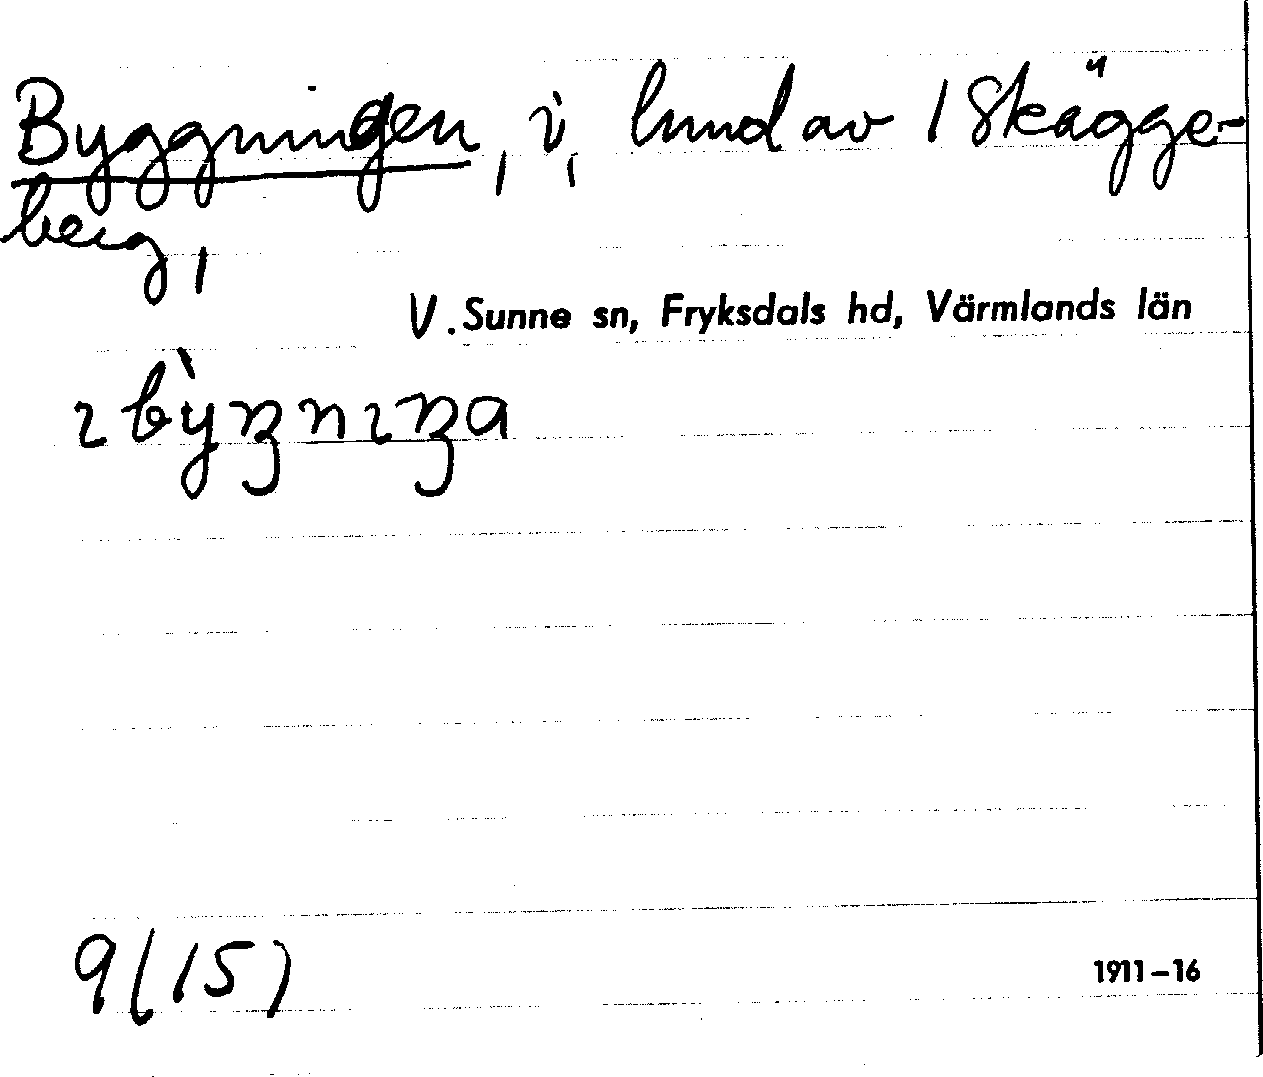 Byggningen, i, lund av 1 Skägge-
berg,
V. Sunne sn, Fryksdals hd, Värmlands län
9(15)
1911-16